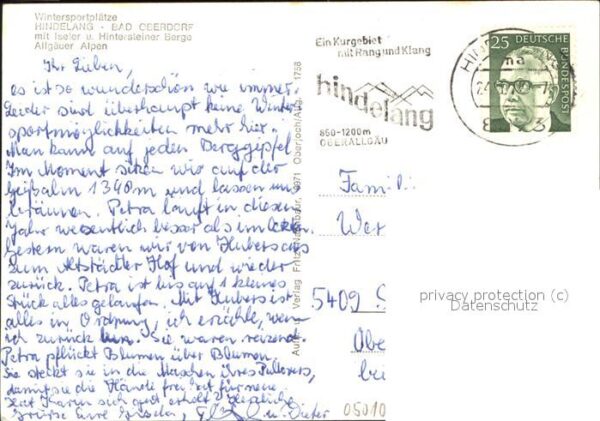 Wintersportplätze
HINDELANG - BAD OBERDORF
mit Iseler u. Hintersteiner Berge
Allgäuer Alpen
Ihr Lieben,
es ist so wunderschön wie immer.
Leider sind überhaupt keine Winter
sportmöglichkeiten mehr hier.
Man kann auf jeden Berggipfel
Im Moment sitzen wir auf der
1340 m und lassen uns
bräunen. Petra läuft in diesem
Jahr wesentlich besser als im letzten.
Gestern waren wir von Hubers aus
zum Altstädter Hof und wieder
zurück. Petra ist bis auf 1 kleines
Stück alles gelaufen. Mit Hubers ist
alles in Ordnung, ich erzähle, wenn
ich zurück bin. Sie waren reizend.
Petra pflückt Blumen über Blumen.
Sie steckt sie in die Maschen ihres Pullovers,
damit sie die Hände frei hat für neue.
Hat Karin sich gut erholt? Herzliche
Grüsse Eure Gisela, u. Dieter
Verlag
1738
Ein Kurgebiet
mit Rang und Klang
hindelang
850-1200m
OBERALLGÄU
25
DEUTSCHE
BUNDESPOST
Famili
Wer
5409
Obe
bei
privacy protection (c)
Datenschutz
05010